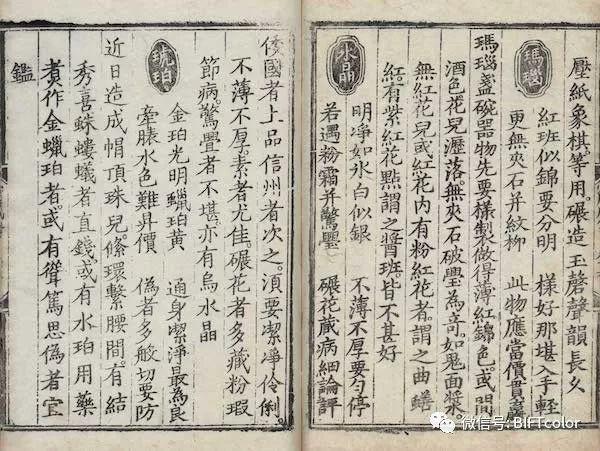 壓紙象棋等用。碾造玉磬聲韻長久
瑪瑙
紅班似錦要分明 樣好那堪入手輕
更無夾石并紋柳 此物應當價貫
瑪瑙盞碗器物先要樣製做得薄紅錦色。或間
酒色花兒灑落。無夾石破璺為奇。如鬼面漿。
無紅花兒或紅花內有粉紅花者。謂之曲蟮
紅。有紫紅花點謂之醬班。皆不甚好
水晶
明凈如水白似銀 不薄不厚要勻停
若遇粉霜并驚璺 碾花藏病細論評
倭國者上品信州者次之。須要潔凈伶俐。
不薄不厚素者尤佳。碾花者多藏粉瑕
節病。驚璺者不堪。亦有烏水晶
琥珀
金珀光明蠟珀黃 通身潔淨最為良
牽水色難昇價 偽者多般切要防
近日造成帽頂珠兒絛環繫腰間。有結
秀喜蛛螻蟻者直錢。或有水珀用藥
煑作金蠟珀者。或有聳篤思偽者宜
鑑
微信号: BIFTcolor